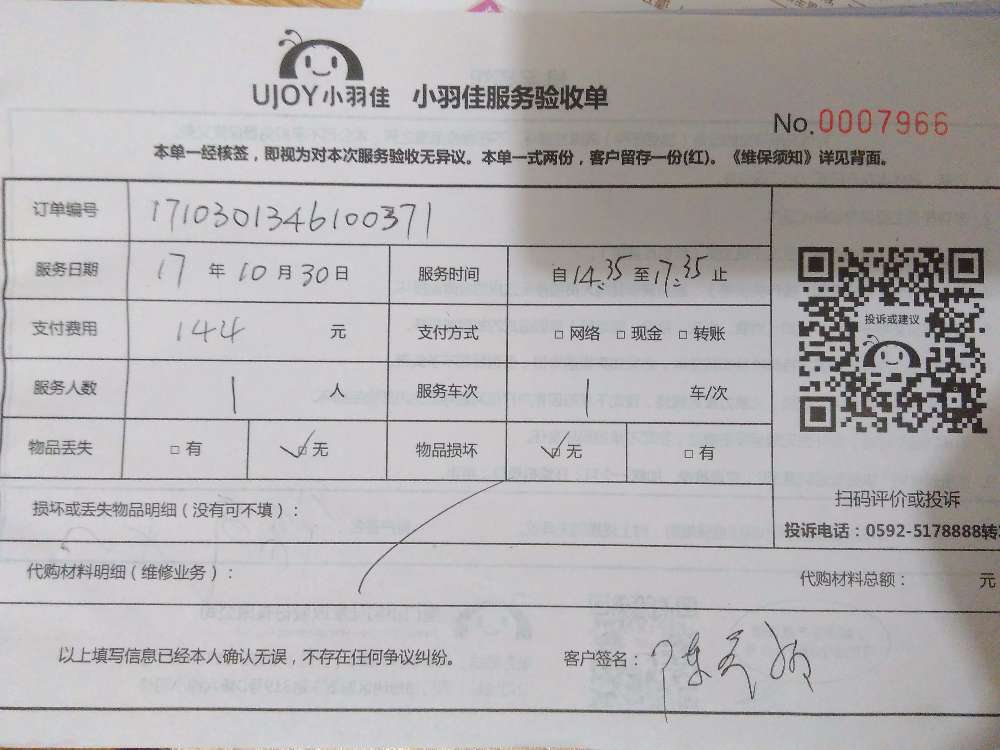 UJOY小羽佳 小羽佳服务验收单
No.0007966
本单一经核签，即视为对本次服务验收无异议。本单一式两份，客户留存一份(红)。《维保须知》详见背面。
订单编号 1710301346100371
服务日期 17 年 10 月 30 日 服务时间 自 14:35 至 17:35 止
投诉或建议
支付费用 144 元 支付方式 □ 网络 □ 现金 □ 转账
服务人数 1 人 服务车次 1 车/次
物品丢失 □ 有 ☑ 无 物品损坏 ☑ 无 □ 有
扫码评价或投诉
损坏或丢失物品明细（没有可不填）：
投诉电话：0592-5178888转
代购材料明细（维修业务）： 代购材料总额： 元
以上填写信息已经本人确认无误，不存在任何争议纠纷。 客户签名：陈